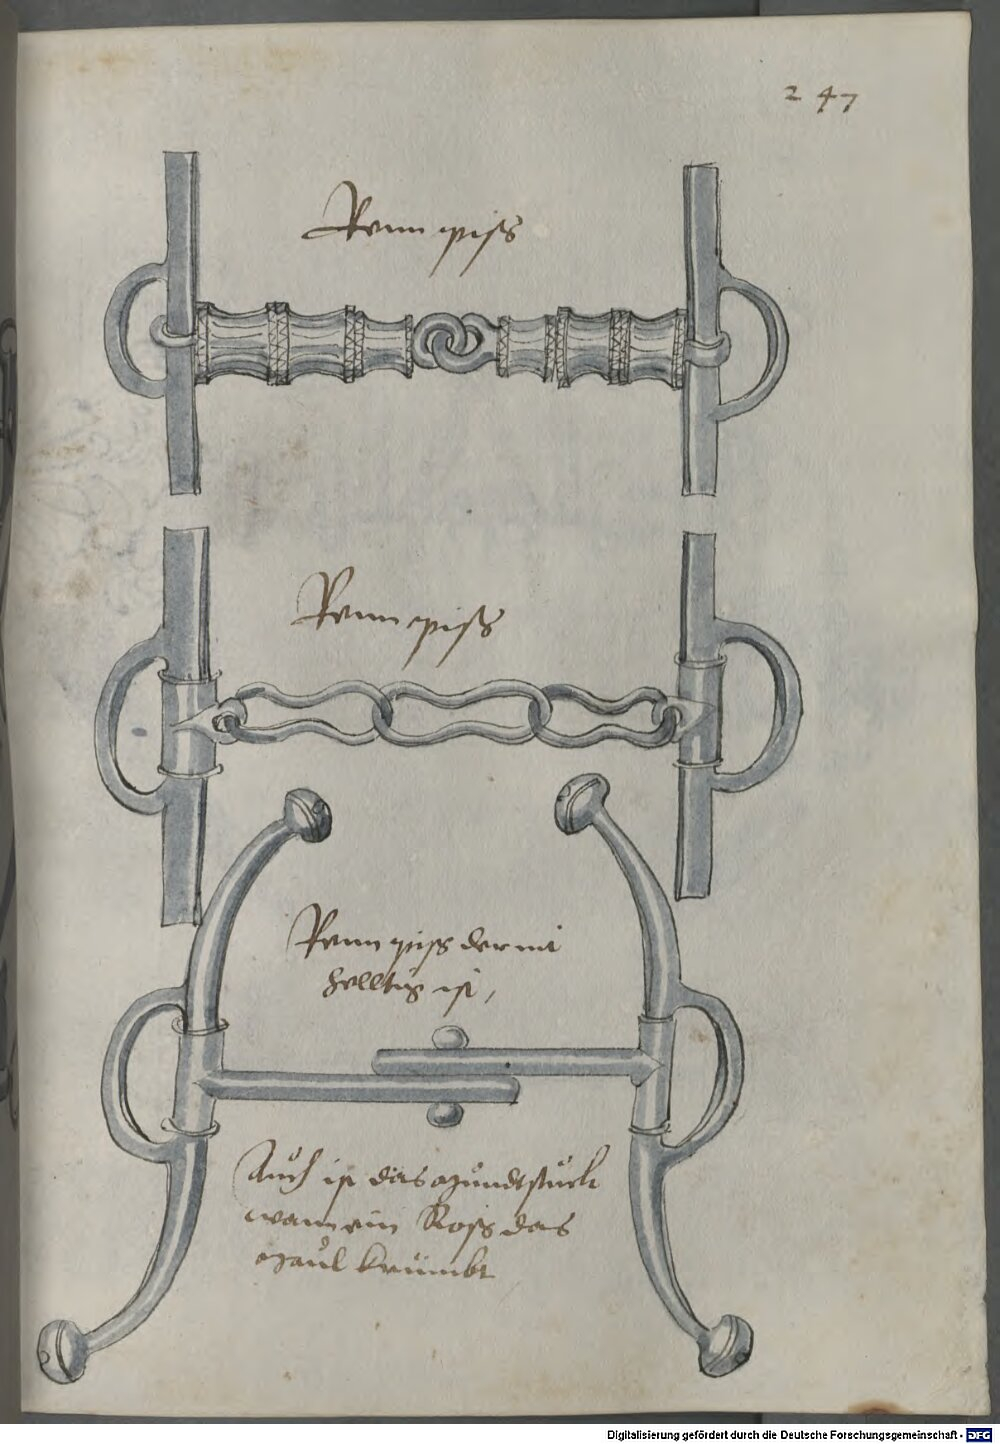 247
Renn piß
Renn piß
Renn piß der nit
helltig ist,
Auch ist das mundtstuck
wann ein Roß das
maul krümbt
Digitalisierung gefördert durch die Deutsche Forschungsgemeinschaft - DFG